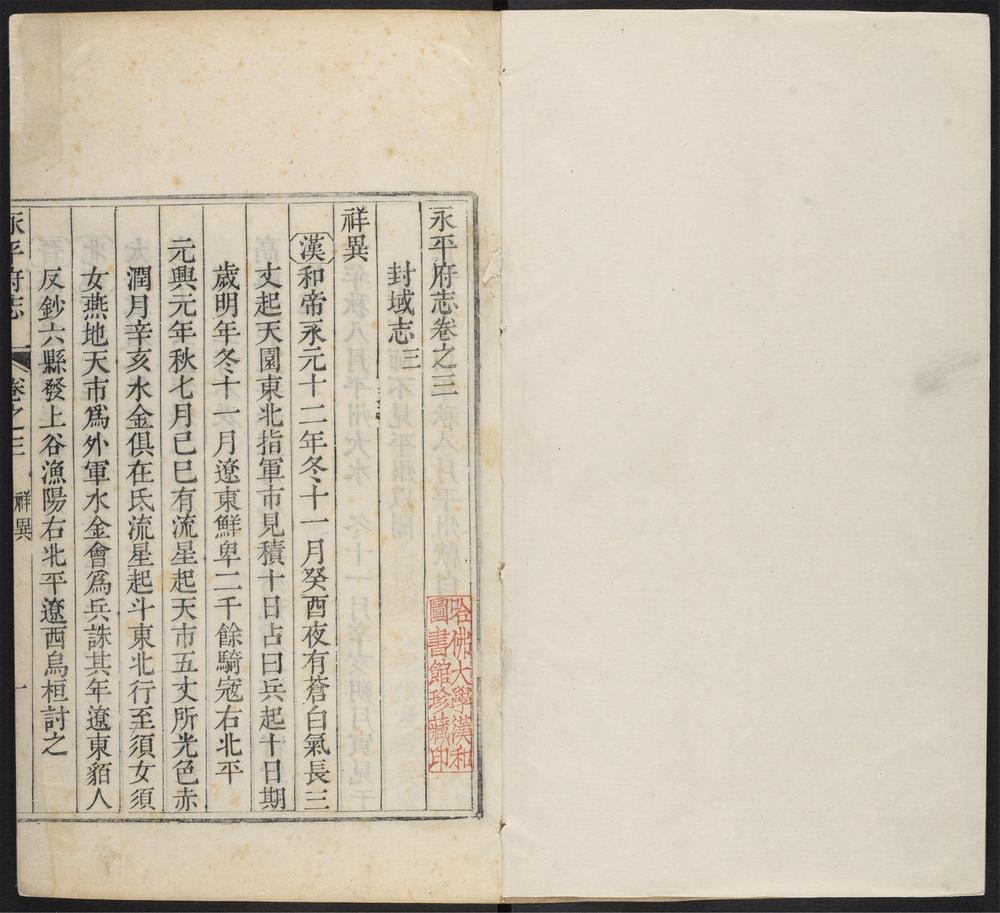 永平府志卷之三
封域志三
祥異
漢和帝永元十二年冬十一月癸酉夜有蒼白氣長三
丈起天園東北指軍市見積十日占曰兵起十日期
歲明年冬十一月遼東鮮卑二千餘騎寇右北平
元興元年秋七月己巳有流星起天市五丈所光色赤
潤月辛亥水金俱在氐流星起斗東北行至須女須
女燕地天市爲外軍水金會爲兵誅其年遼東貊人
反鈔六縣發上谷漁陽右北平遼西烏桓討之
永平府志 卷之三 祥異 一
哈佛大學漢和
圖書館珍藏印